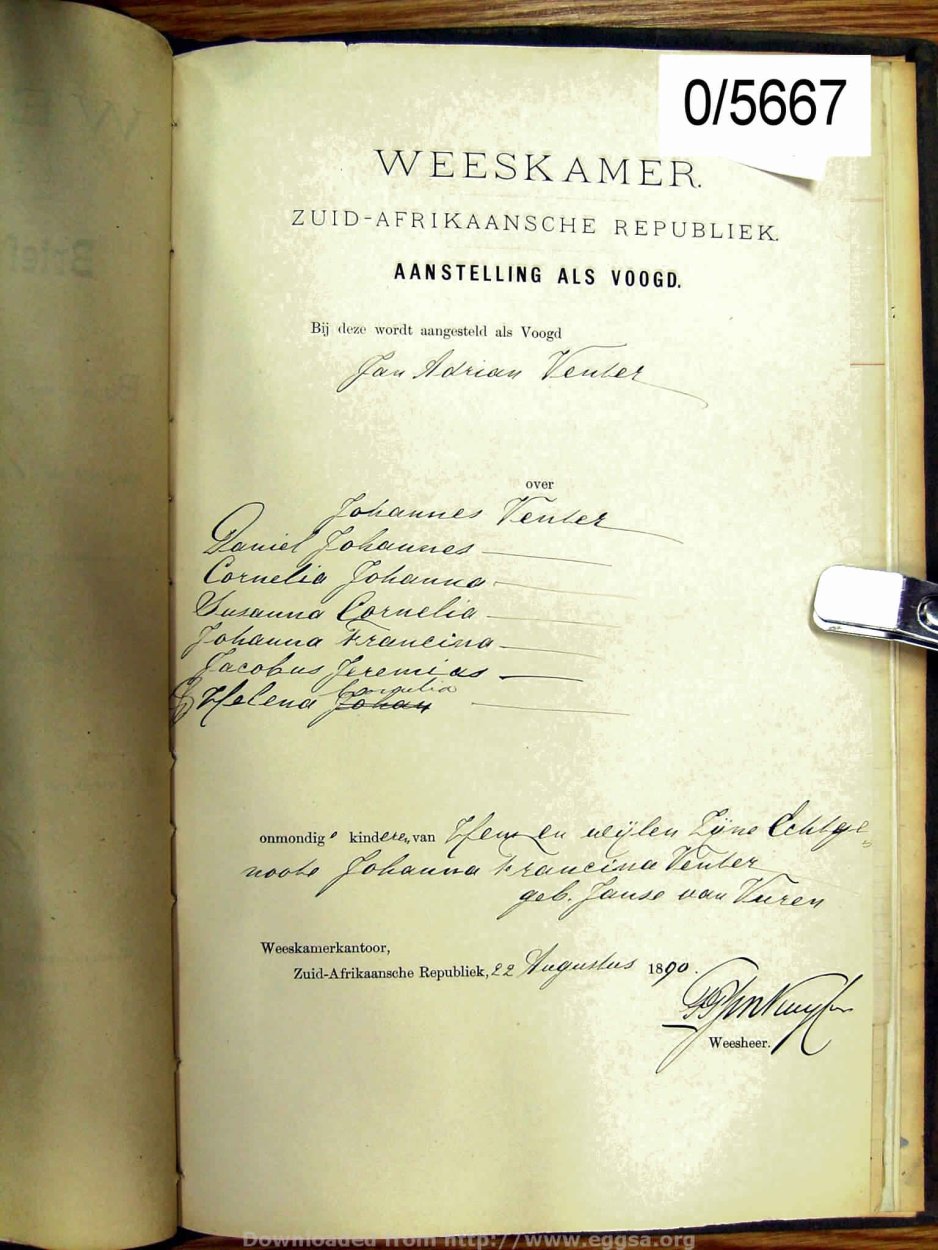 0/5667
WEESKAMER.
ZUID-AFRIKAANSCHE REPUBLIEK.
AANSTELLING ALS VOOGD.
Bij deze wordt aangesteld als Voogd
Jan Adrian Venter
over
Johannes Venter
Daniel Johannes
Cornelia Johanna
Susanna Cornelia
Johanna Francina
Jacobus Jeremias
Cornelia
& Helena Johan
onmondige kinderen van Hem en wijlen Zijne Echtge=
noote Johanna Francina Venter
geb. Janse van Vuren
Weeskamerkantoor,
Zuid-Afrikaansche Republiek, 22 Augustus 1890.
Weesheer.
Downloaded from http://www.eggsa.org